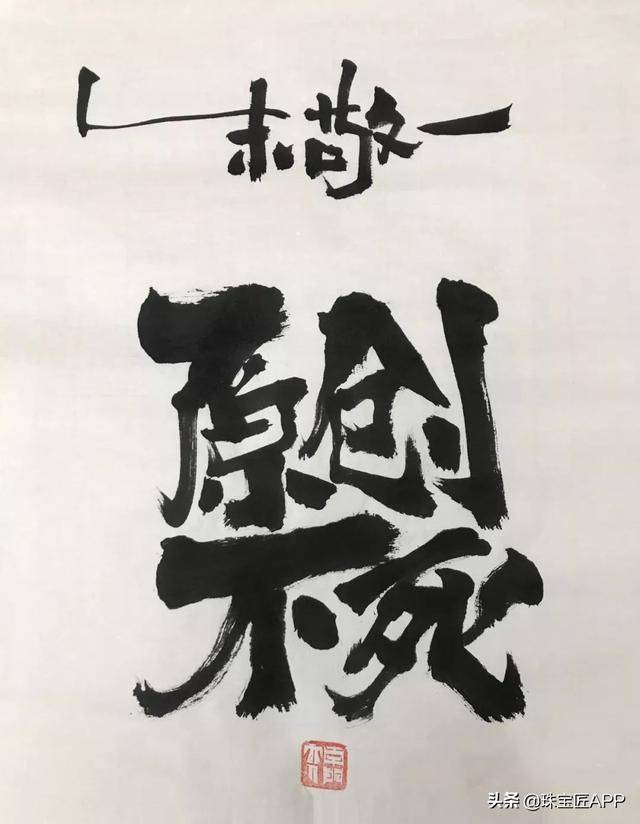 朱敬一
原创
不死
头条 @珠宝匠APP